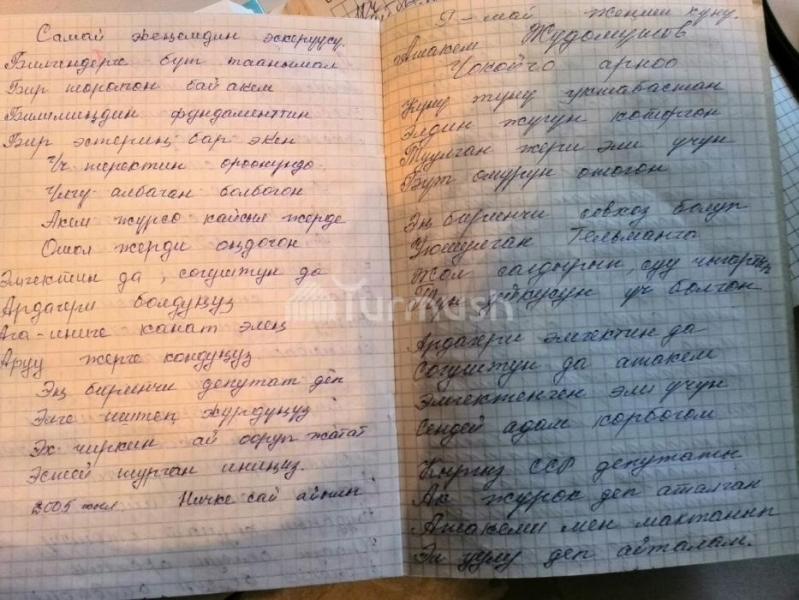 Самай жеңемдин эскерүүсү
Билгендерге бүт таанымал
Бир торолгон бай акем
Билимиңдин фундаменттин
Бир эстериң бар экен
Үч теректин ороокундо
Үлгү албаган болбогон
Аким жүрсө кайсыл жерде
Ошол жерди оңдогон
Эмгектин да, согуштун да
Ардагери болдуңуз
Ага-иниге канат элең
Аруу жерге кондуңуз
Эң биринчи депутат деп
Элге иштеп жүрдүңүз
Эх чиркин ай ооруп жатат
Эсией турган иниңиз.
2005 жыл. Ничке сай айпин
9-май жеңиш күнү.
Атакем Жудомушов
Чокойчо арноо
Күнү түнү уктабастан
Элдин жүгүн көтөргөн
Туулган жери эли үчүн
Бүт өмүрүн өтөгөн
Эң биринчи совхоз болуп
Уюшулган Тельманга
Жол салдырып, суу чыгарып
Түн уйкусун үч бөлгөн
Ардагери эмгектин да
Согуштун да атакем
Эмгектенген эли үчүн
Сендей адам көрбөгөм
Кыргыз ССР депутаты
Ак жүрөк деп аталган
Атакеми мен мактанып
Эл уулу деп айталам.
Turmush